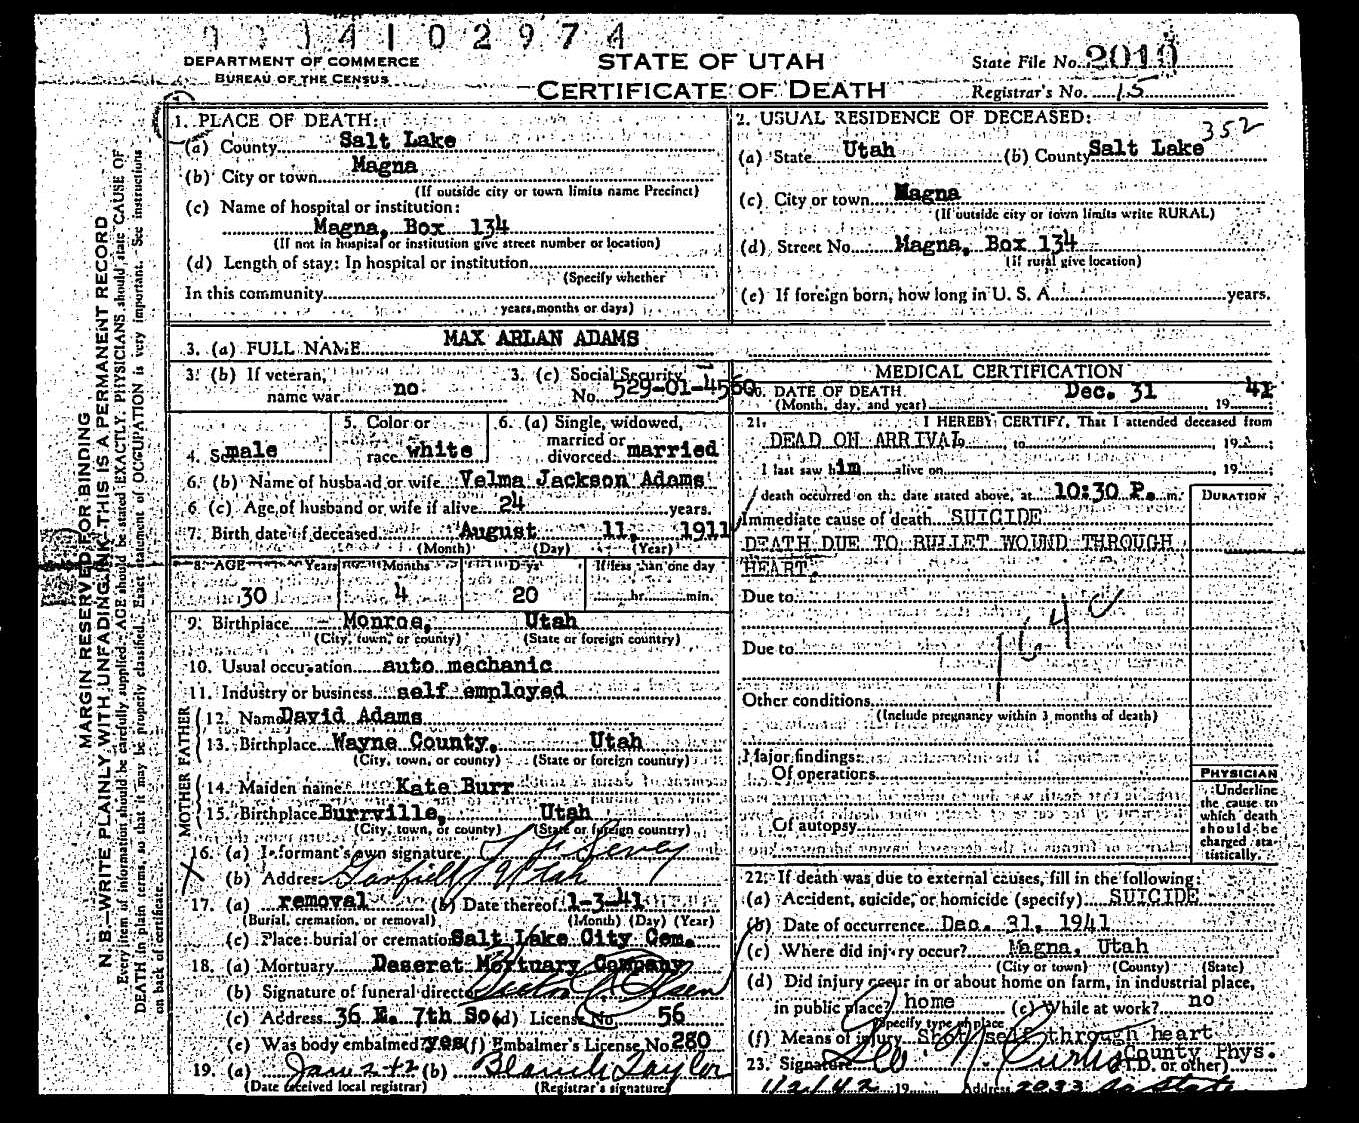 0014102974
DEPARTMENT OF COMMERCE
BUREAU OF THE CENSUS
STATE OF UTAH
CERTIFICATE OF DEATH
State File No. 2010
Registrar's No. 15
MARGIN RESERVED FOR BINDING
N. B.—WRITE PLAINLY WITH UNFADING INK—THIS IS A PERMANENT RECORD
Every item of information should be carefully supplied. AGE should be stated EXACTLY. PHYSICIANS should state CAUSE OF
DEATH in plain terms, so that it may be properly classified. Exact statement of OCCUPATION is very important. See instructions
on back of certificate.
1. PLACE OF DEATH:
(a) County Salt Lake
(b) City or town Magna
(If outside city or town limits name Precinct)
(c) Name of hospital or institution:
Magna, Box 134
(If not in hospital or institution give street number or location)
(d) Length of stay: In hospital or institution
(Specify whether
In this community
years, months or days)
2. USUAL RESIDENCE OF DECEASED:
352
(a) State Utah (b) County Salt Lake
(c) City or town Magna
(If outside city or town limits write RURAL)
(d) Street No. Magna, Box 134
(If rural give location)
(e) If foreign born, how long in U. S. A. years.
3. (a) FULL NAME MAX ARLAN ADAMS
3. (b) If veteran, name war no
3. (c) Social Security No. 529-01-4560
4. Sex male
5. Color or race white
6. (a) Single, widowed, married or divorced married
6. (b) Name of husband or wife Velma Jackson Adams
6 (c) Age of husband or wife if alive 24 years.
7. Birth date of deceased August 11, 1911
(Month) (Day) (Year)
8. AGE Years Months Days If less than one day
30 4 20 hr. min.
9. Birthplace Monroe, Utah
(City, town, or county) (State or foreign country)
10. Usual occupation auto mechanic
11. Industry or business self employed
FATHER
12. Name David Adams
13. Birthplace Wayne County, Utah
(City, town, or county) (State or foreign country)
MOTHER
14. Maiden name Kate Burr
15. Birthplace Burrville, Utah
(City, town, or county) (State or foreign country)
16. (a) Informant's own signature
(b) Address Garfield, Utah
17. (a) removal (b) Date thereof 1-3-41
(Burial, cremation, or removal) (Month) (Day) (Year)
(c) Place: burial or cremation Salt Lake City Cem.
18. (a) Mortuary Deseret Mortuary Company
(b) Signature of funeral director
(c) Address 36 E. 7th So. (d) License No. 56
(e) Was body embalmed? yes (f) Embalmer's License No. 280
19. (a) Jan 2-42 (b) Blanch Taylor
(Date received local registrar) (Registrar's signature)
MEDICAL CERTIFICATION
20. DATE OF DEATH Dec. 31 1941
(Month, day, and year)
21. I HEREBY CERTIFY, That I attended deceased from
DEAD ON ARRIVAL to 19
I last saw him alive on 19
death occurred on the date stated above, at 10:30 P. m.
DURATION
Immediate cause of death SUICIDE
DEATH DUE TO BULLET WOUND THROUGH
HEART.
Due to
164
Due to
Other conditions
(Include pregnancy within 3 months of death)
Major findings:
Of operations
Of autopsy
PHYSICIAN
Underline
the cause to
which death
should be
charged sta-
tistically.
22. If death was due to external causes, fill in the following:
(a) Accident, suicide, or homicide (specify) SUICIDE
(b) Date of occurrence Dec. 31, 1941
(c) Where did injury occur? Magna, Utah
(City or town) (County) (State)
(d) Did injury occur in or about home on farm, in industrial place,
in public place? home (e) While at work? no
(Specify type of place)
(f) Means of injury Shot self through heart
23. Signature County Phys.
(M.D. or other)
1/2/42 19 Address 2033 So State